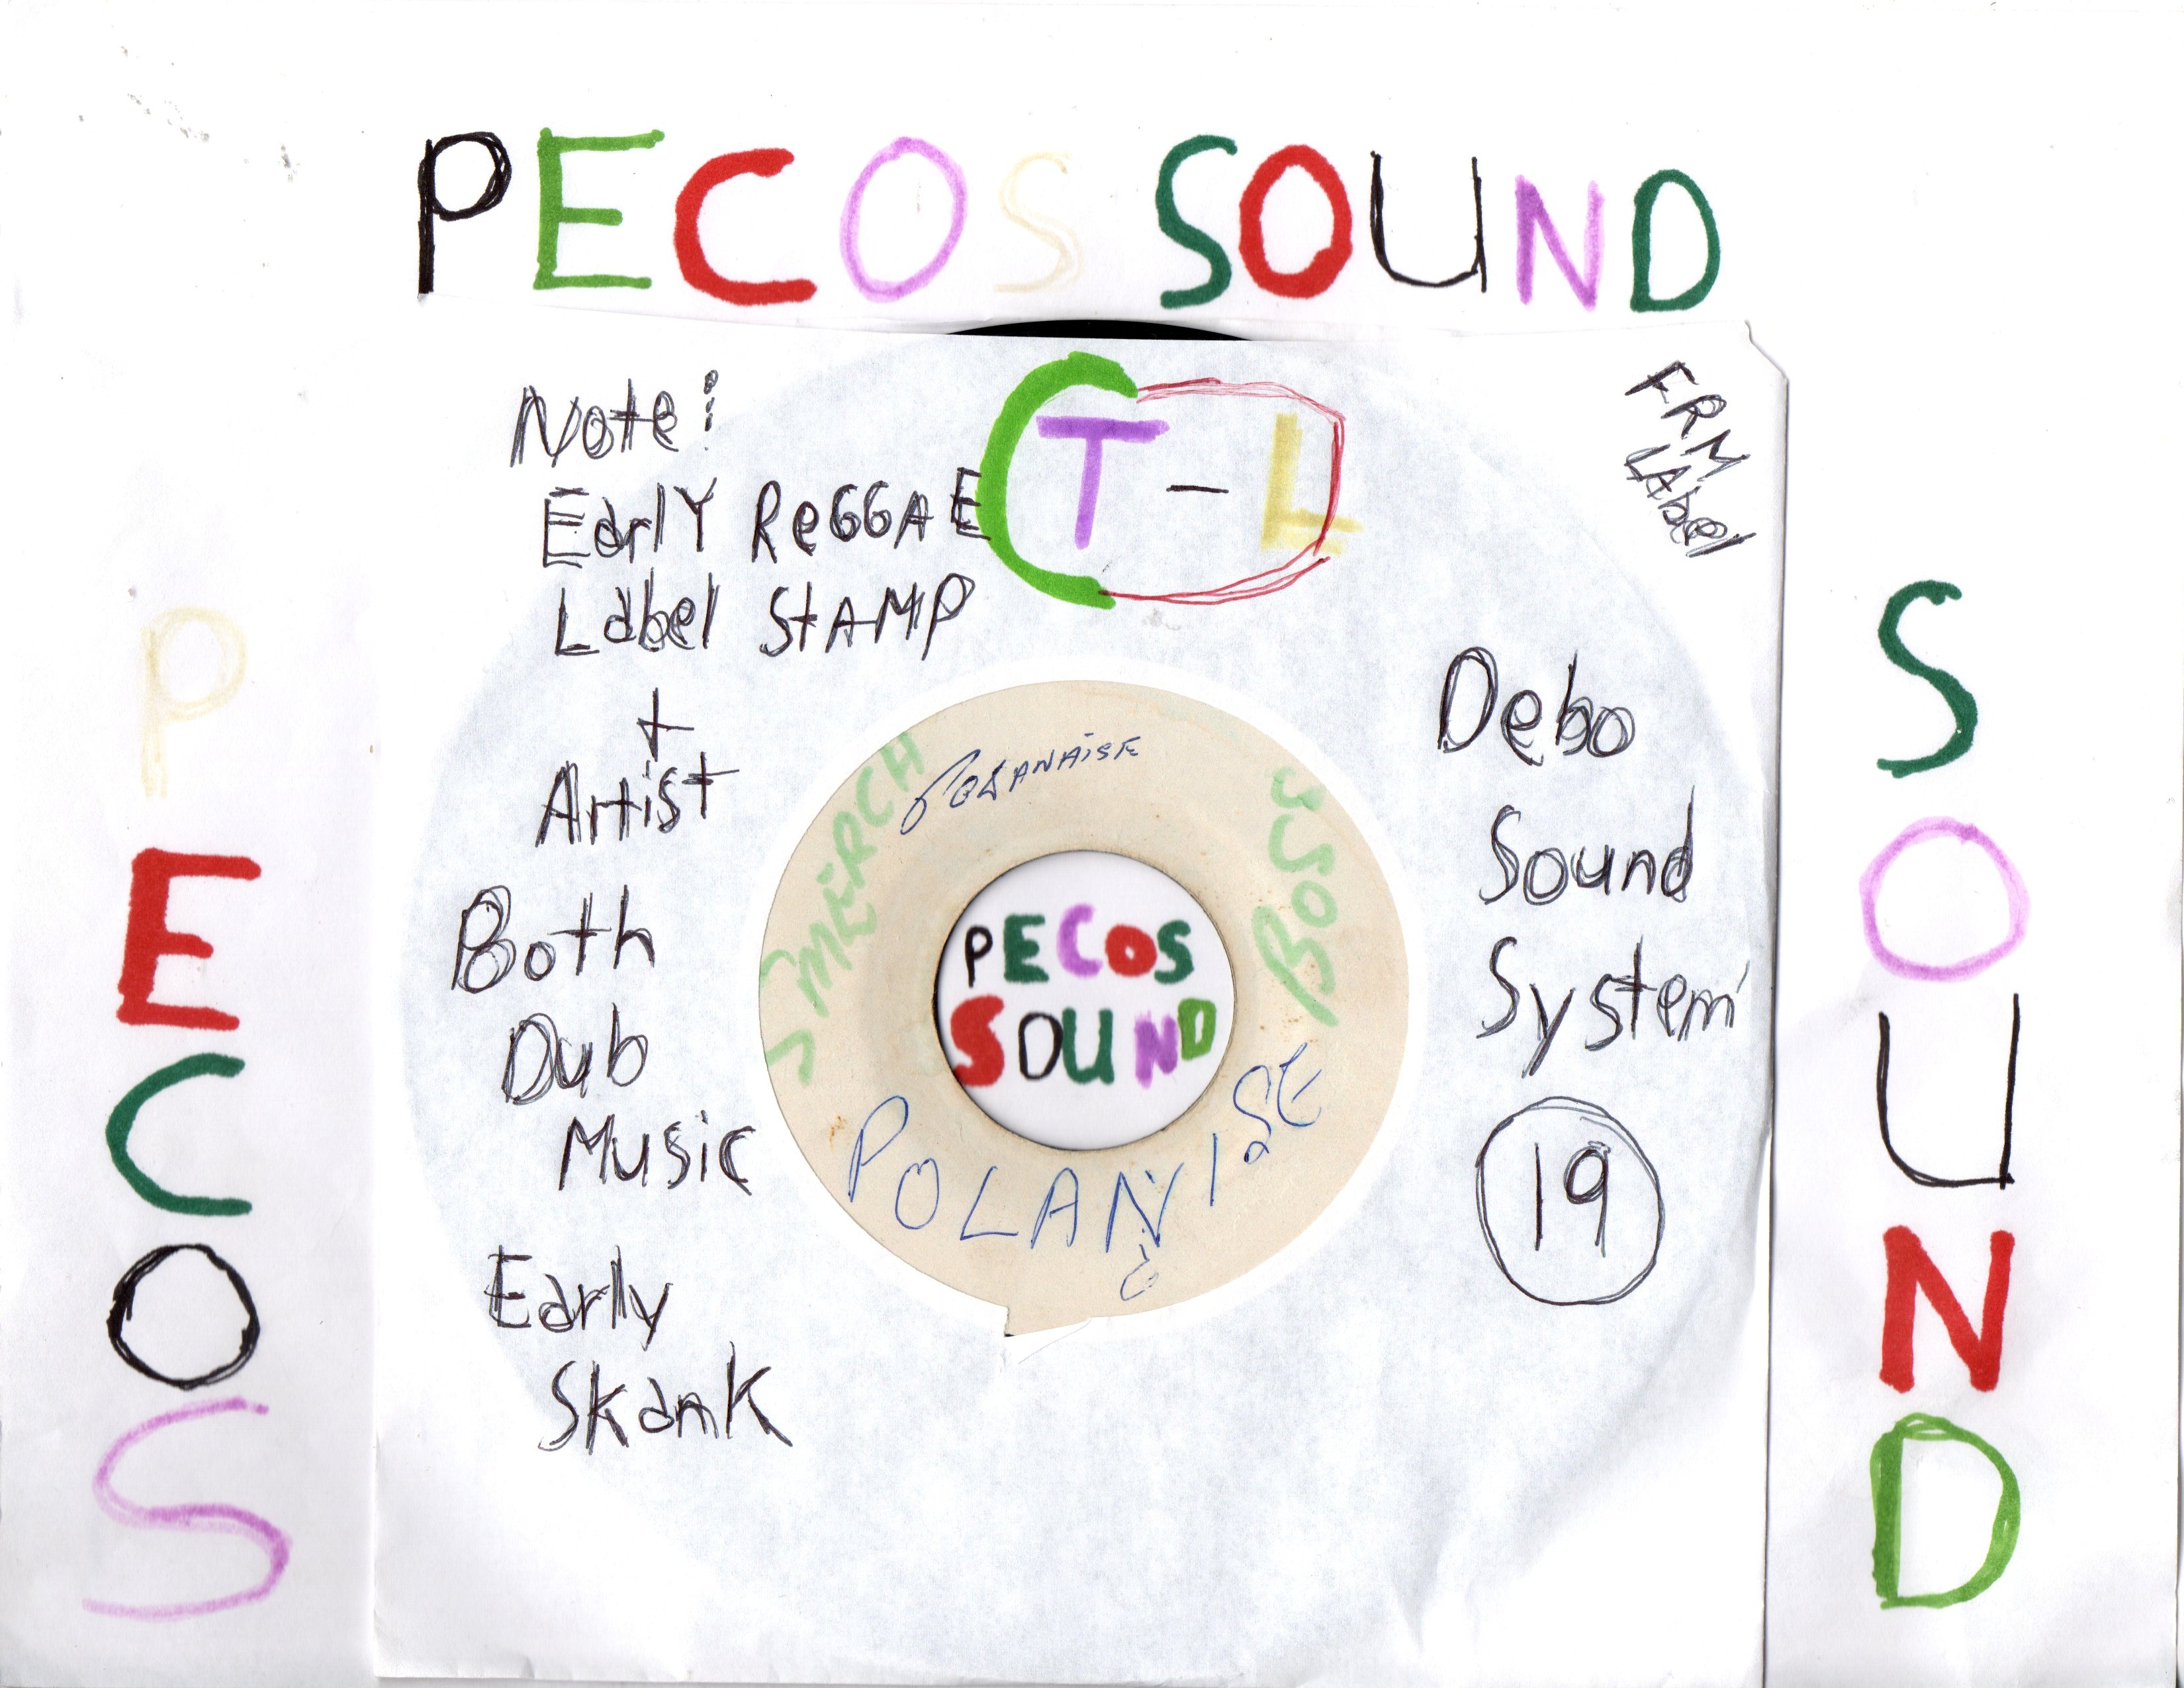 PECOS SOUND
Note:
EArlY ReGGAE
LAbel StAMP
+
Artist
Both
Dub
Music
Early
Skank
T - L
FRM
LAbel
Debo
Sound
System
19
POLANAiSE
BOSS
PECOS
SOUND
POLANISE
PECOS
SOUND